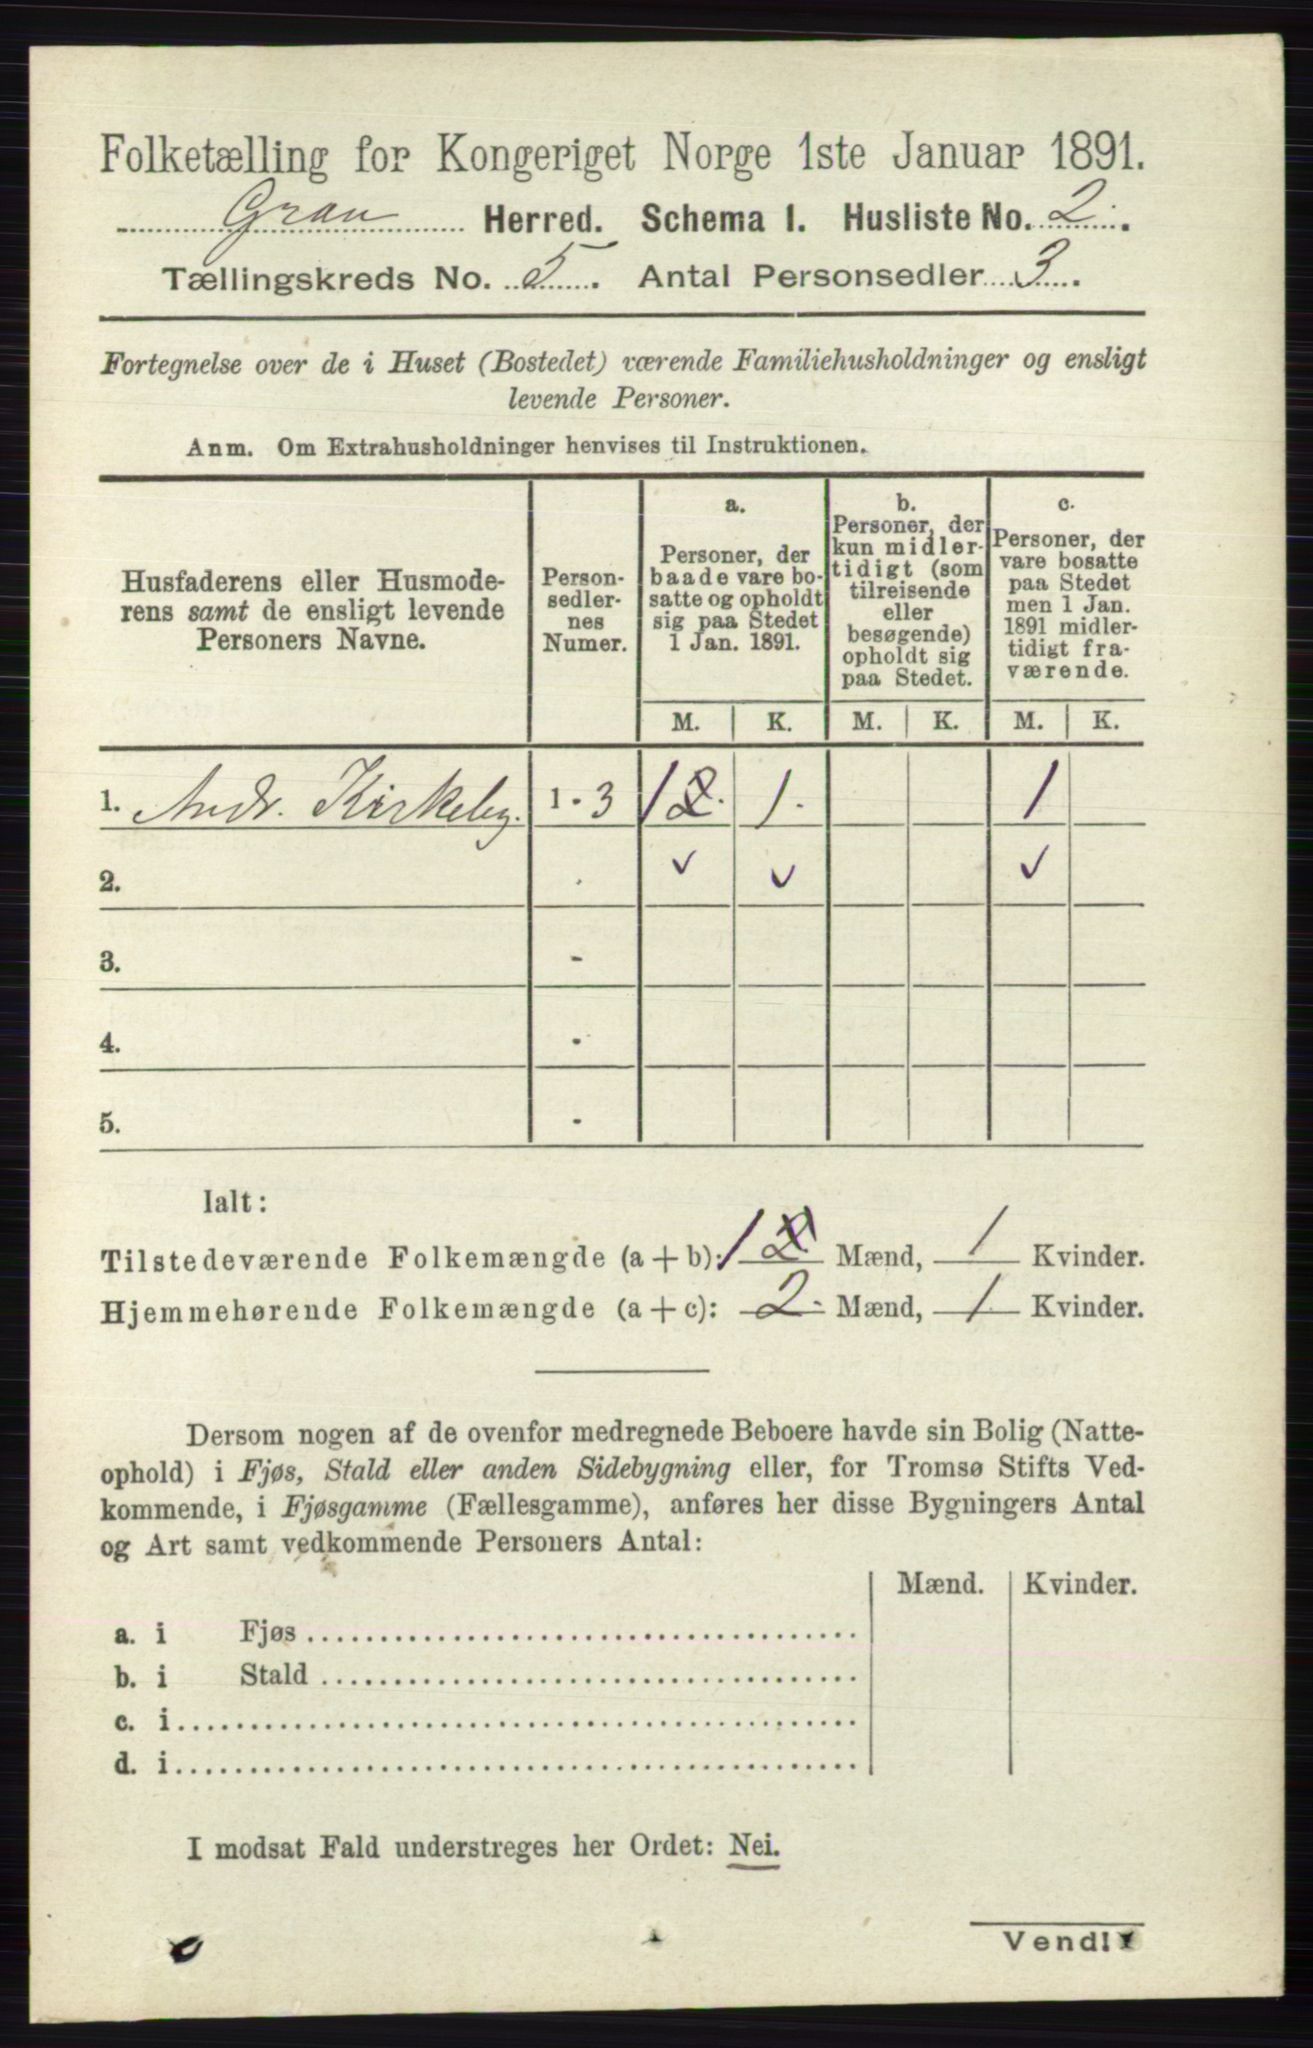 Folketælling for Kongeriget Norge 1ste Januar 1891.
Gran Herred. Schema 1. Husliste No. 2.
Tællingskreds No. 5. Antal Personsedler 3.
Fortegnelse over de i Huset (Bostedet) værende Familiehusholdninger og ensligt
levende Personer.
Anm. Om Extrahusholdninger henvises til Instruktionen.
Husfaderens eller Husmode-
rens samt de ensligt levende
Personers Navne.
Person-
sedler-
nes
Numer.
a.
Personer, der
baade vare bo-
satte og opholdt
sig paa Stedet
1 Jan. 1891.
b.
Personer, der
kun midler-
tidigt (som
tilreisende
eller
besøgende)
opholdt sig
paa Stedet.
c.
Personer, der
vare bosatte
paa Stedet
men 1 Jan.
1891 midler-
tidigt fra-
værende.
M. K. M. K. M. K.
1. Andr. Kirkeby. 1 - 3 1 2. 1. 1
2. ✓ ✓ ✓
3. -
4. -
5. -
Ialt:
Tilstedeværende Folkemængde (a + b): 1 2 Mænd, 1 Kvinder.
Hjemmehørende Folkemængde (a + c): 2 Mænd, 1 Kvinder.
Dersom nogen af de ovenfor medregnede Beboere havde sin Bolig (Natte-
ophold) i Fjøs, Stald eller anden Sidebygning eller, for Tromsø Stifts Ved-
kommende, i Fjøsgamme (Fællesgamme), anføres her disse Bygningers Antal
og Art samt vedkommende Personers Antal:
Mænd. Kvinder.
a. i Fjøs
b. i Stald
c. i
d. i
I modsat Fald understreges her Ordet: Nei.
Vend!